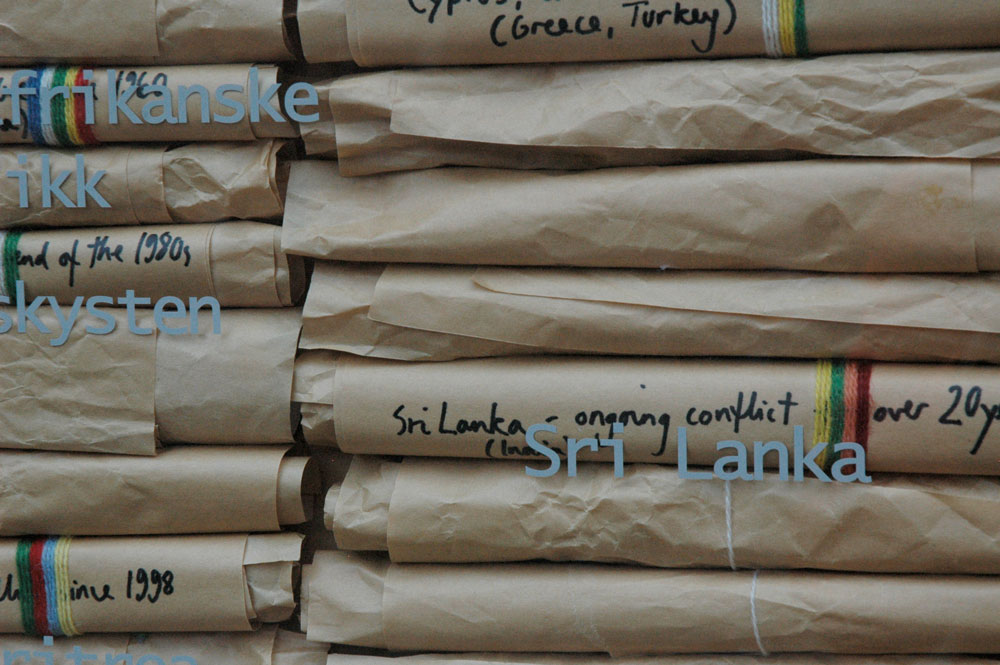 (Greece, Turkey)
1960
frikanske
ikk
end of the 1980s
skysten
Sri Lanka - ongoing conflict over 20y
Sri Lanka
since 1998
ritrea